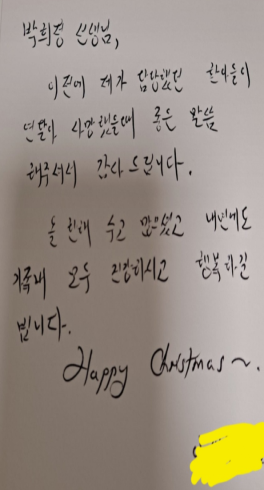 박희정 선생님,
이전에 제가 담당했던 환아들이
연달아 사망했을때 좋은 말씀
해주셔서 감사드립니다.
올 한해 수고 많으셨고 내년에도
가족내 모두 건강하시고 행복하길
빕니다.
Happy Christmas ~.